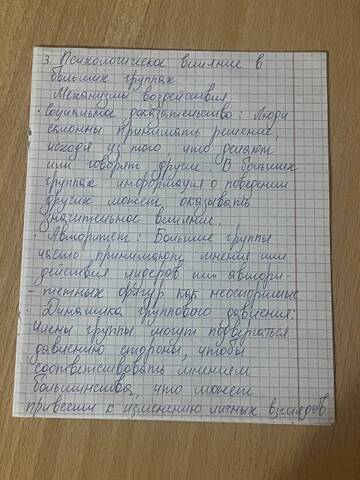 3. Психологическое влияние в
больших группах
Механизмы воздействия
· Социальное доказательство: Люди
склонны принимать решение,
исходя из того, что делают
или говорят другие. В больших
группах информация о поведении
других может оказывать
значительное влияние.
· Авторитет: Большие группы
часто принимают мнения или
действия лидеров или автори-
- тетных фигур как неоспоримые
· Динамика группового давления:
Члены группы могут подвергаться
давлению стороны, чтобы
соответствовать мнениям
большинства, что может
привести к изменению личных взглядов